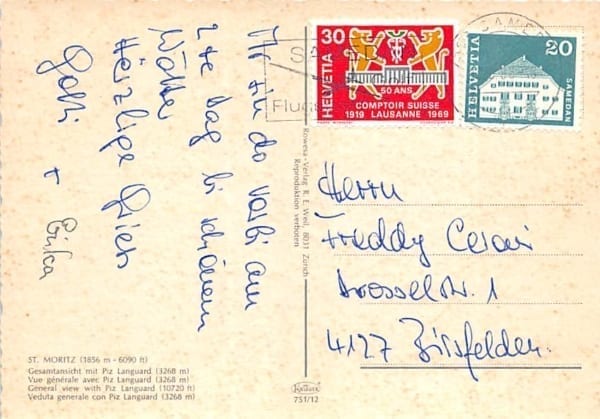 Mir sin do vorbi am
2te Tag bi schönem
Wätter
Herzlige Griess
Gotti
+
Erica
ST. MORITZ (1856 m - 6090 ft)
Gesamtansicht mit Piz Languard (3268 m)
Vue générale avec Piz Languard (3268 m)
General view with Piz Languard (10720 ft)
Veduta generale con Piz Languard (3268 m)
Rowesa-Verlag R. E. Weil, 8031 Zürich
Reproduktion verboten
751/12
SAMEDAN
Flug
30
HELVETIA
50 ANS
COMPTOIR SUISSE
1919 LAUSANNE 1969
HELVETIA
20
SAMEDAN
Herrn
Freddy Cesari
Drosselstr. 1
4127 Birsfelden.